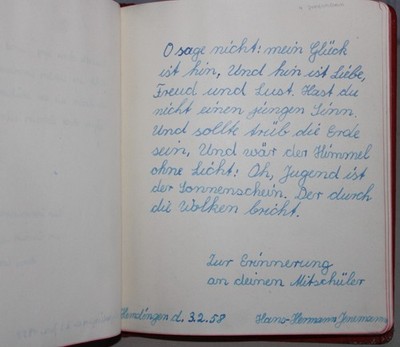 O sage nicht: mein Glück
ist hin, Und hin ist Liebe,
Freud und Lust. Hast du
nicht einen jungen Sinn.
Und sollte trüb die Erde
sein, Und wär der Himmel
ohne Licht: Oh, Jugend ist
der Sonnenschein. Der durch
die Wolken bricht.
Zur Erinnerung
an deinen Mitschüler
d. 3.2.58 Hans-Hermann